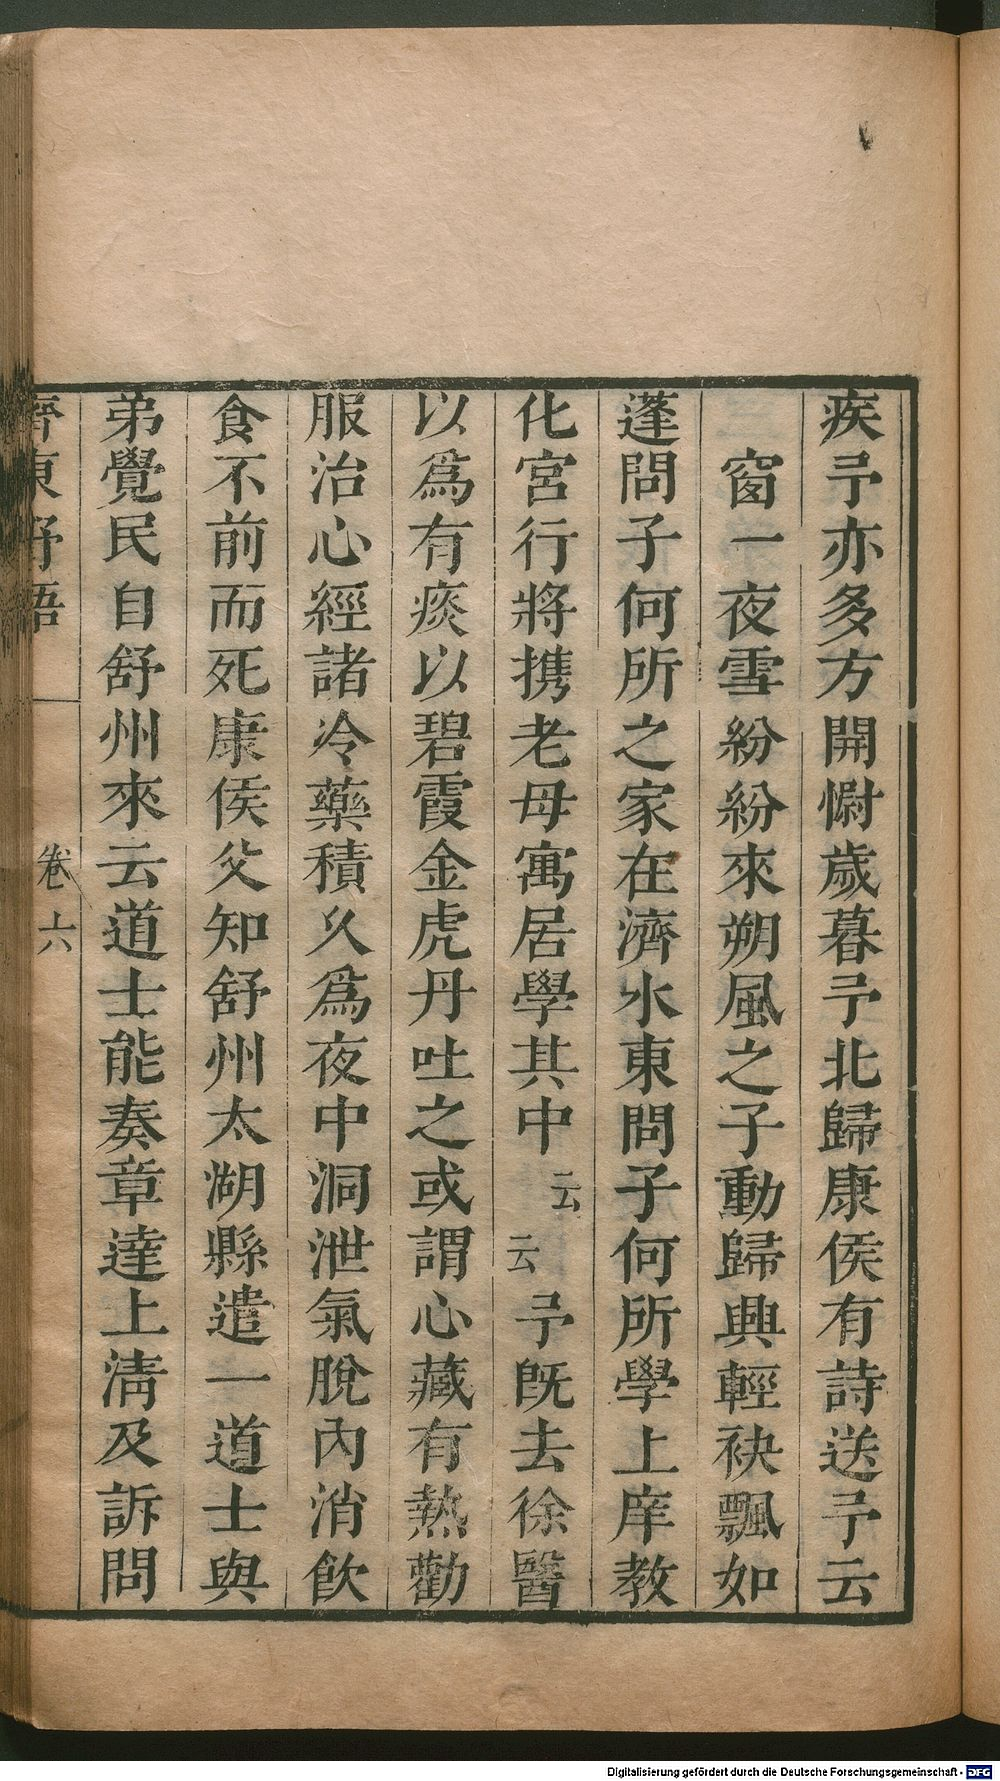 疾予亦多方開慰歲暮予北歸康侯有詩送予云
窗一夜雪紛紛來朔風之子動歸興輕袂飄如
蓬問子何所之家在濟水東問子何所學上庠教
化宮行將携老母寓居學其中云云予既去徐醫
以爲有痰以碧霞金虎丹吐之或謂心藏有熱勸
服治心經諸冷藥積久爲夜中洞泄氣脫內消飮
食不前而死康侯父知舒州太湖縣遣一道士與
弟覺民自舒州來云道士能奏章達上淸及訴問
齊東野語
卷六
Digitalisierung gefördert durch die Deutsche Forschungsgemeinschaft - DFG